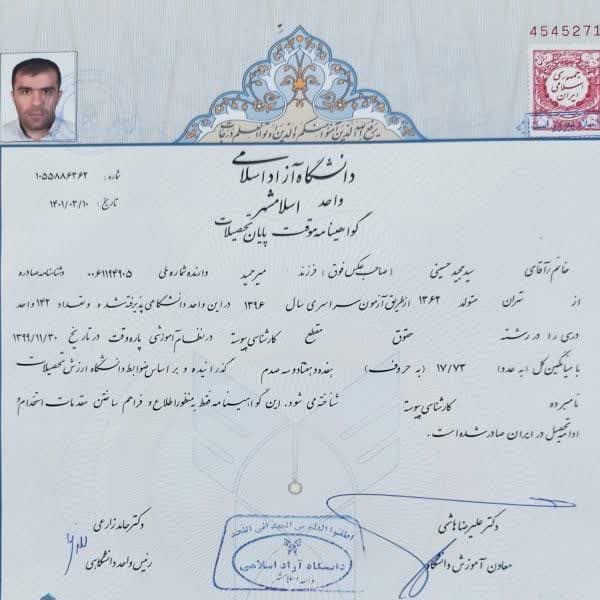 4545271
جمهوری
اسلامی
ایران
یرفع الله الذین آمنوا منکم والذین اوتوا العلم درجات
دانشگاه آزاد اسلامی
واحد اسلامشهر
گواهینامه موقت پایان تحصیلات
شماره: ۱۰۵۵۸۸۶۳۶۲
تاریخ: ۱۴۰۱/۰۳/۱۰
خانم/آقای سید مجید حسینی (صاحب عکس فوق) فرزند میرحمید دارنده شماره ملی ۰۰۶۱۱۹۴۹۰۵ و شناسنامه صادره
از تهران متولد ۱۳۶۲ از طریق آزمون سراسری سال ۱۳۹۶ در این واحد دانشگاهی پذیرفته شده و تعداد ۱۴۲ واحد
درسی را در رشته حقوق مقطع کارشناسی پیوسته در نظام آموزشی پاره وقت در تاریخ ۱۳۹۹/۱۱/۳۰
با میانگین کل (به عدد) ۱۷/۷۳ (به حروف) هفده و هفتاد و سه صدم گذرانیده و بر اساس ضوابط دانشگاه ارزش تحصیلات
نامبرده کارشناسی پیوسته شناخته می شود. این گواهینامه فقط به منظور اطلاع و فراهم ساختن مقدمات استخدام و
ادامه تحصیل در ایران صادر شده است.
دکتر علیرضا هاشمی
معاون آموزش دانشگاه
دکتر حامد زارعی
رئیس واحد دانشگاهی
اطلبوا العلم من المهد الی اللحد
دانشگاه آزاد اسلامی
واحد اسلامشهر